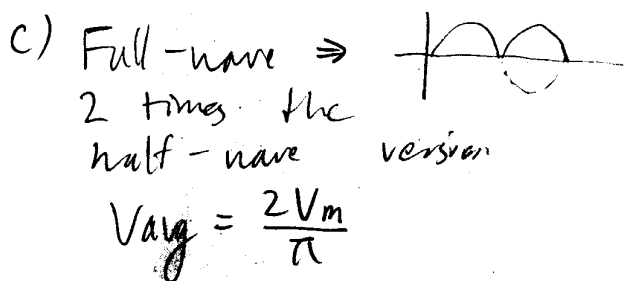 c) Full-wave ⇒
2 times the
half-wave version
Vavg = 2Vm/π